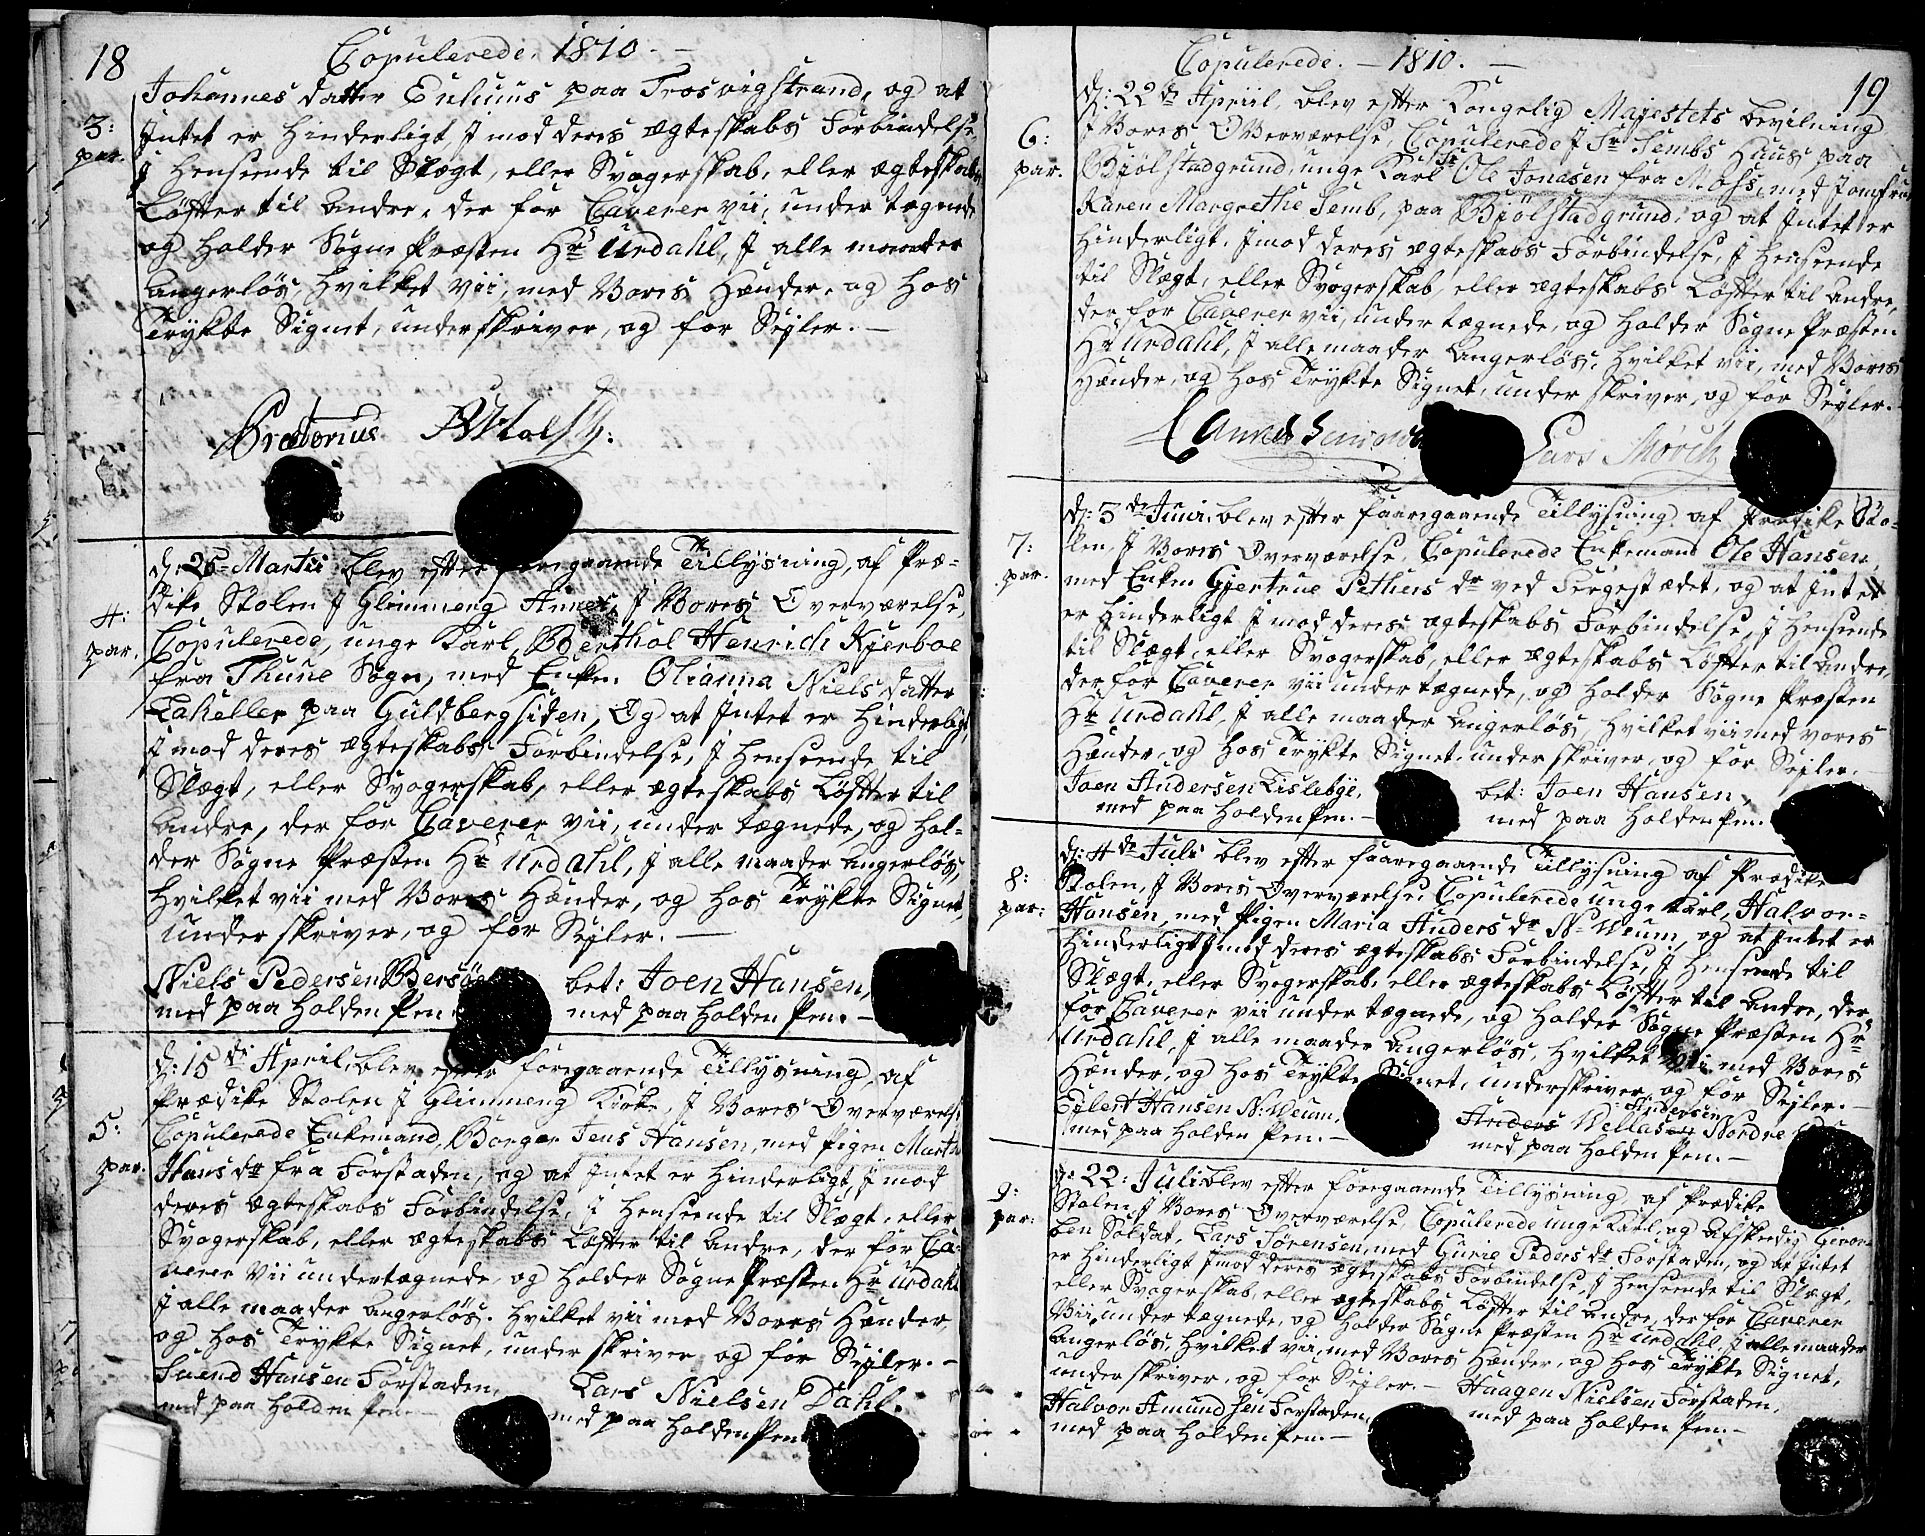 18
Copulerede. 1810. —
Johannes datter Enhuus paa Trosvigstrand, og at
3: par.
Intet er Hinderligt J mod deres ægteskabs Forbindelse
J Henseende til Slægt, eller Svogerskab, eller ægteskabs
Løfter til Andre, der for Caverer vii, under tægnede
og holder Sogne Præsten Hr Urdahl, J alle maader
Angerløs, Hvilket vii, med Vores Hænder, og hos
Trykte Signet, under skriver, og for Segler. —
Prætorius
d: 25 Martii blev efter foregaaende Tillysning, af Præ-
4: par.
dike Stolen J Glimmeng Annex, J Vores Overværelse,
Copulerede, unge Karl, Berthol Henrich Kjerboe
fra Thune Sogn, med Enken Olianna Niels datter
Lakeller paa Guldbergsiden, Og at Intet er Hinderligt,
J mod deres ægteskabs Forbindelse, J Henseende til
Slægt, eller Svogerskab, eller ægteskabs Løfter til
Andre, der for Caverer vii, under tægnede, og hol-
der Sogne Præsten Hr Urdahl, J alle maader Angerløs,
Hvilket vii med Vores Hænder, og hos Trykte Signet,
under skriver, og for Segler. —
Niels Pedersen Bersöe
med paa holden Pen.
bet: Joen Hansen,
med paa holden Pen. —
d: 15de April, blev efter foregaaende Tillysning, af
Prædike Stolen J Glimmeng Kirke, J Vores Overværelse
5: par.
Copulerede Enkemand, Borger Jens Hansen, med Pigen Martе
Hans dr fra Forstaden, og at Intet er Hinderligt, J mod
deres ægteskabs Forbindelse, i Henseende til Slægt, eller
Svogerskab, eller ægteskabs Løfter til Andre, der for Ca-
verer Vii undertægnede, og holder Sogne Præsten Hr Urdahl
J alle maader Angerløs. Hvilket vii med Vores Hænder,
og hos Trykte Signet, under skriver og for Segler. —
Svend Hansen Forstaden,
med paa holden Pen. —
Lars Nielsen Dahl.
med paa holden Pen.
19
Copulerede. — 1810. —
d: 22de Apriil, blev efter Kongelig Majestets bevilning
6: par.
J Vores Overværelse, Copulerede J Sr Sembs Huus, paa
Bjölstadgrund, unge Karl Sr Ole Jonasen fra Moss, med Jomfrue
Karen Margrethe Semb, paa Bjölstadgrund, og at Intet er
Hinderligt, J mod deres ægteskabs Forbindelse, J Henseende
til Slægt, eller Svogerskab, eller ægteskabs Løfter til Andre,
der for Caverer vii, under tægnede, og holder Sogne Præsten
Hr Urdahl, J alle maader Angerløs, Hvilket vii, med Vores
Hænder, og hos Trykte Signet, under skriver, og for Segler. —
Lars Mörch
d: 3de Juni, blev efter foregaaende Tillysning, af Prædike Sto-
7: par.
len, J Vores Overværelse, Copulerede Enkemand Ole Hansen,
med Enken Gjertrue Pethers dr ved Fergestædet, og at Intet
er Hinderligt J mod deres ægteskabs Forbindelse, J Henseende
til Slægt, eller Svogerskab, eller ægteskabs Løfter til Andre,
der for Caverer vii under tægnede, og holder Sogne Præsten
Hr Urdahl, J alle maader Angerløs, Hvilket vii med vores
Hænder, og hos Trykte Signet, under skriver, og for Segler. —
Joen Andersen Lislebye,
med paa holden Pen. —
bet: Joen Hansen,
med paa holden Pen.
d: 4de Juli blev efter foregaaende Tillysning af Prædike
8: par:
Stolen, J Vores Overværelse, Copulerede unge Karl, Halvor
Hansen, med Pigen Maria Anders dr N: Veum, og at Intet er
Hinderligt J mod deres ægteskabs Forbindelse, J Henseende til
Slægt, eller Svogerskab, eller ægteskabs Løfter til Andre, der
for Caverer vii under tægnede, og holder Sogne Præsten Hr
Urdahl, J alle maader Angerløs, Hvilket vii med Vores
Hænder, og hos Trykte Signet, underskriver, og for Segler. —
Eglert Hansen N: Veum,
med paa holden Pen. —
Andersen
Nordre
med paa holden Pen. —
d: 22: Juli blev efter foregaaende Tillysning, af Prædike
9: par:
Stolen, J Vores Overværelse, Copulerede unge Karl, og Afskedig Gevor-
ben Soldat, Lars Sörensen, med Gurie Peders dr Forstaden, og at Intet
er Hinderligt J mod deres ægteskabs Forbindelse, J Henseende til Slægt,
eller Svogerskab, eller ægteskabs Løfter til Andre, der for Caverer
Vii, under tægnede, og holder Sogne Præsten Hr Urdahl, J alle maader
Angerløs, Hvilket vii, med Vores Hænder, og hos Trykte Signet,
under skriver, og for Segler. —
Halvor Amundsen Forstaden,
med paa holden Pen. —
Haagen Nielsen Forstaden,
med paa holden Pen. —